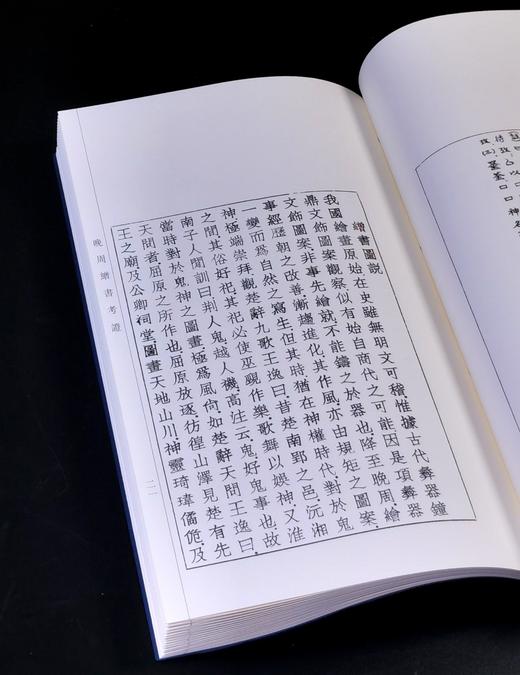 繒書圖說
我國繪畫原始在史雖無明文可稽惟據古代彝器鐘
鼎文飾圖案觀察似有始自商代之可能因是項彝器
文飾圖案非事先繪就不能鑄之於器也降至晚周繪
事經歷朝之改善漸趨進化其作風亦由規矩之圖案
一變而為自然之寫生但其時猶在神權時代對於鬼
神極端崇拜觀楚辭九歌王逸曰昔楚南郢之邑沅湘
之間其俗好祀其祀必使巫覡作樂歌舞以娛神又淮
南子人間訓曰荆人鬼越人禨高注云鬼好鬼事也故
當時對於鬼神之圖畫極為風尚如楚辭天問王逸曰
天問者屈原之所作也屈原放逐彷徨山澤見楚有先
王之廟及公卿祠堂圖畫天地山川神靈琦瑋僪佹及
晚周繒書考證